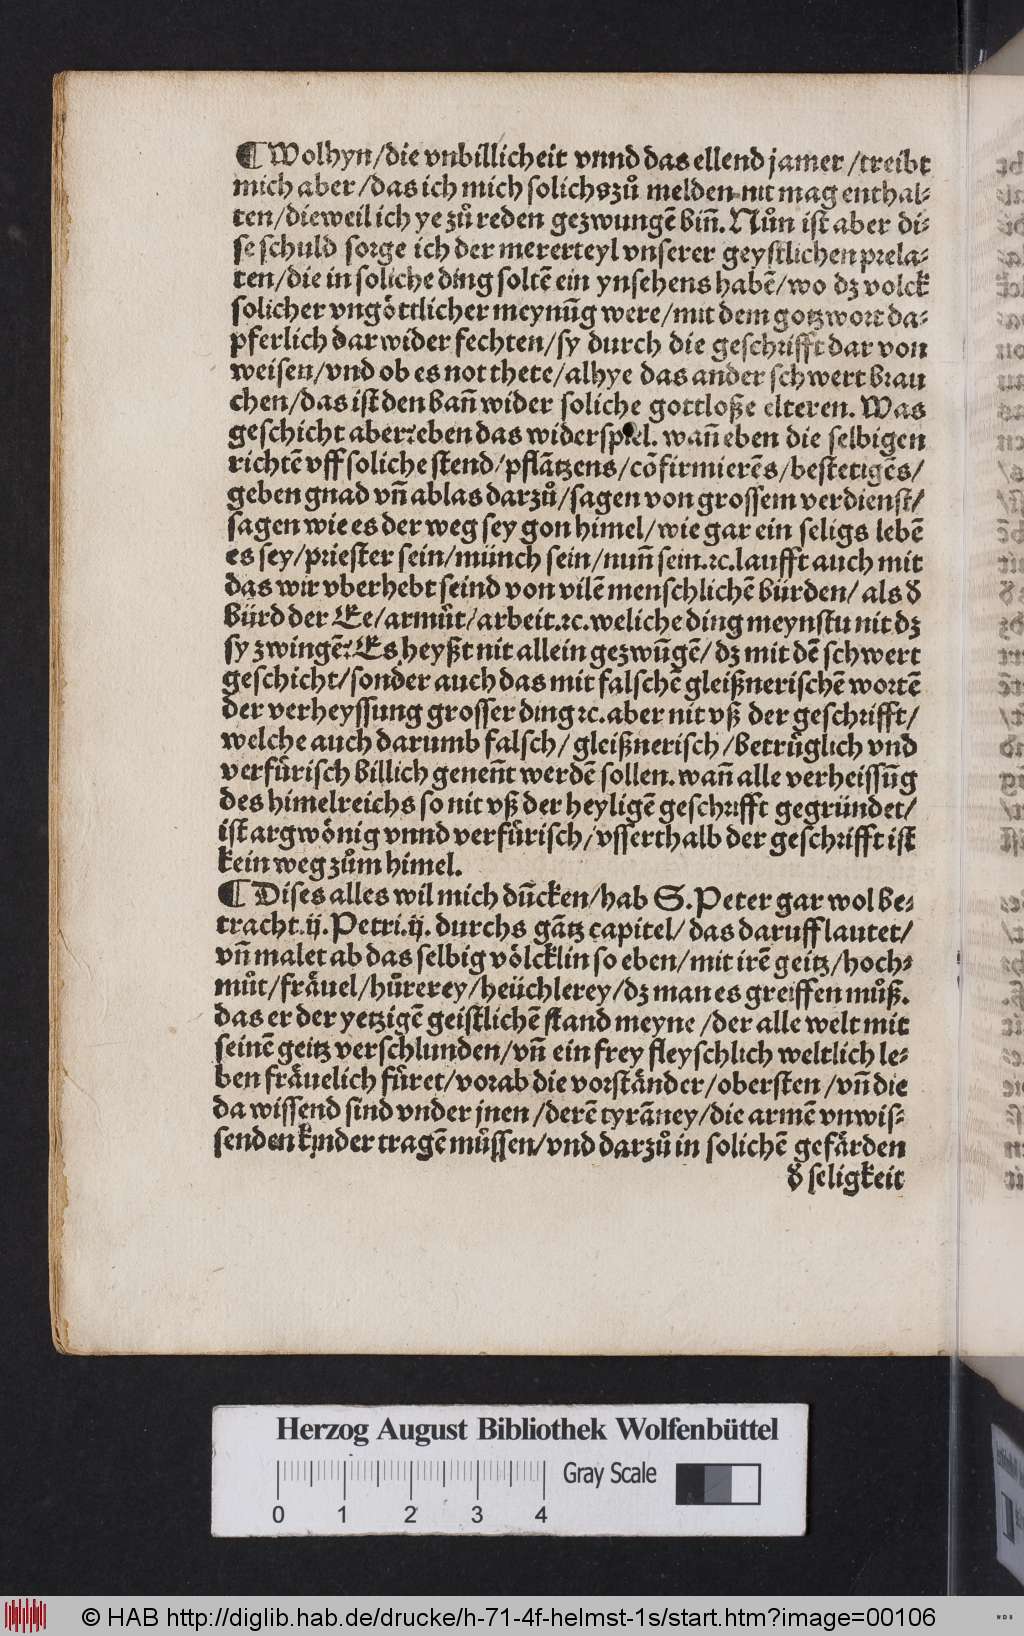 ¶ Wolhyn/die vnbillicheit vnnd das ellend jamer/treibt
mich aber/das ich mich solichs zů melden nit mag enthal⸗
ten/dieweil ich ye zů reden gezwungē bin̄. Nůn ist aber di⸗
se schuld sorge ich der mererteyl vnserer geystlichen prela⸗
ten/die in soliche ding soltē ein ynsehens habē/wo dz volck
solicher vngöttlicher meynūg were/mit dem gotzwort da⸗
pferlich darwider fechten/sy durch die geschrifft dar von
weisen/vnd ob es not thete/alhye das ander schwert brau
chen/das ist den ban̄ wider soliche gottloße elteren. Was
geschicht aber? eben das widerspiel. wan̄ eben die selbigen
richtē vff soliche stend/pflātzens/cōfirmierēs/bestetigēs/
geben gnad vn̄ ablas darzů/sagen von grossem verdienst/
sagen wie es der weg sey gon himel/wie gar ein seligs lebē
es sey/priester sein/münch sein/nun̄ sein.ꝛc.laufft auch mit
das wir vberhebt seind von vilē menschlichē bürden/ als d̕
bürd der Ee/armůt/arbeit.ꝛc.weliche ding meynstu nit dz
sy zwingē? Es heyßt nit allein gezwūgē/ dz mit dē schwert
geschicht/sonder auch das mit falschē gleißnerischē wortē
der verheyssung grosser ding ꝛc.aber nit vß der geschrifft/
welche auch darumb falsch/ gleißnerisch/betrüglich vnd
verfürisch billich genen̄t werdē sollen. wan̄ alle verheissūg
des himelreichs so nit vß der heyligē geschrifft gegründet/
ist argwönig vnnd verfürisch/vsserthalb der geschrifft ist
kein weg zům himel.
¶ Dises alles wil mich dūcken/hab S. Peter gar wol be⸗
tracht.ij. Petri.ij. durchs gātz capitel/ das daruff lautet/
vn̄ malet ab das selbig völcklin so eben/mit irē geitz/hoch⸗
můt/fräuel/hůrerey/heüchlerey/dz man es greiffen můß.
das er der yetzigē geistlichē stand meyne/der alle welt mit
seinē geitz verschlunden/vn̄ ein frey fleyschlich weltlich le⸗
ben fräuelich füret/vorab die vorständer/obersten/vn̄ die
da wissend sind vnder jnen/derē tyrāney/die armē vnwis⸗
senden kinder tragē müssen/vnd darzů in solichē gefärden
d̕ seligkeit
Herzog August Bibliothek Wolfenbüttel
Gray Scale
0 1 2 3 4
© HAB http://diglib.hab.de/drucke/h-71-4f-helmst-1s/start.htm?image=00106